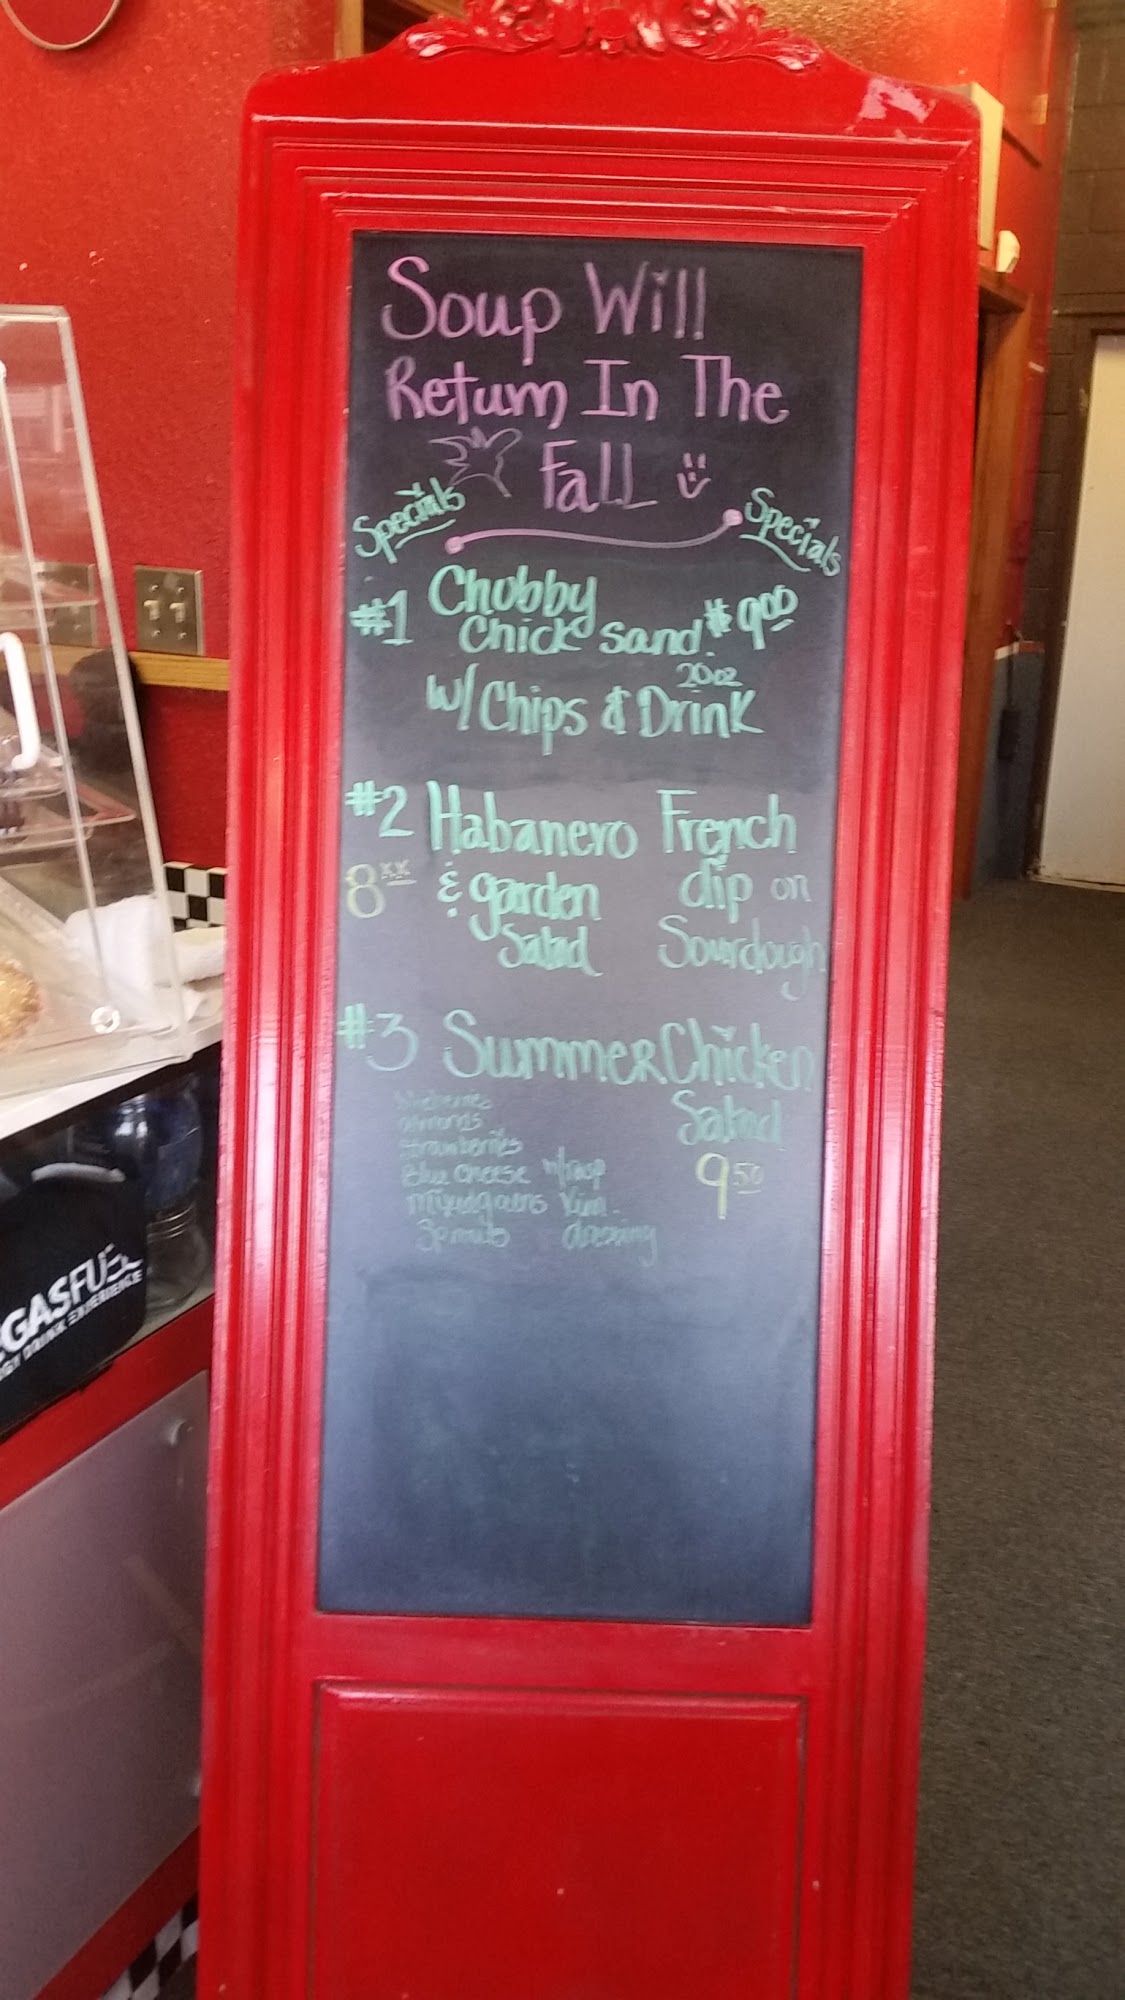 Soup Will
Return In The
Fall
Specials
Specials
#1 Chubby
Chick sand. $9.00
w/ Chips & 20oz Drink
#2 Habanero French
8 & garden dip on
Salad Sourdough
#3 Summer Chicken
Salad
9.50
almonds
strawberries
Blue Cheese w/rasp
Mixed greens Vin.
Sprouts dressing
GASFUEL
DRINK EXPERIENCE